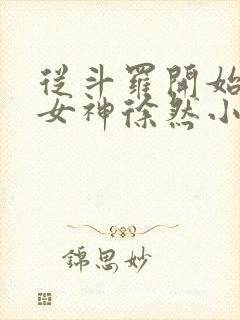 從斗羅開始
女神徐然小
錦思妙